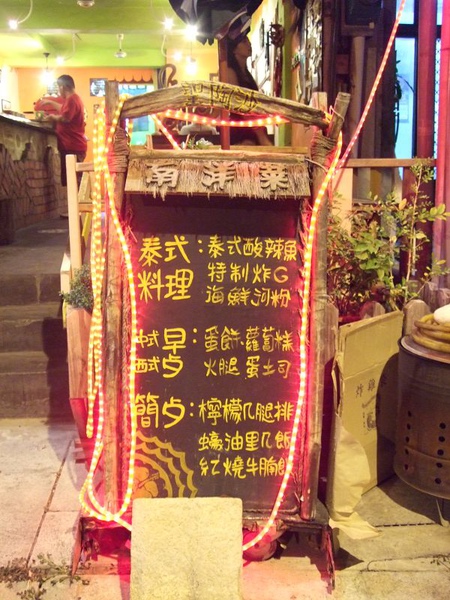 南洋菜
泰式料理：泰式酸辣魚
特制炸G
海鮮河粉
早点：蛋餅．蘿蔔糕
火腿蛋土司
簡点：檸檬几腿排
蠔油里几飯
紅燒牛腩飯
炸雞